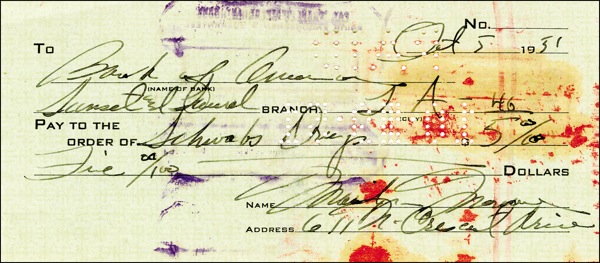 No.
Oct 5 1931
To Bank of America
(NAME OF BANK)
Sunset & Laurel BRANCH L A
(CITY)
PAY TO THE
ORDER OF Schwabs Drugs 5 00/100
Five 00/100 DOLLARS
NAME
ADDRESS 611 N. Crescent Drive